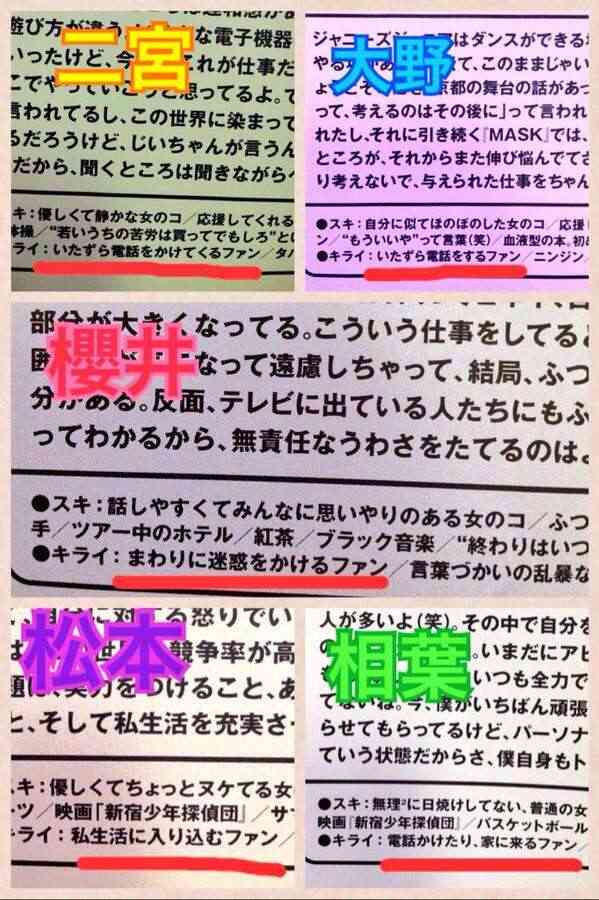 二宮
遊び方が違う
な電子機器
いったけど、今
これが仕事だ
こでやっていこうと思ってるよ。て
言われてるし、この世界に染まって
るだろうけど、じいちゃんが言うん
だから、聞くところは聞きながらべ
スキ：優しくて静かな女のコ／応援してくれる
体操／“若いうちの苦労は買ってでもしろ”とい
キライ：いたずら電話をかけてくるファン／タバ
大野
ジャニーズジュニアはダンスができる
やる
て、このままじゃい
京都の舞台の話があっ
って、考えるのはその後に」って言われ
れたし、それに引き続く『MASK』では、
ところが、それからまた伸び悩んでてさ
り考えないで、与えられた仕事をちゃん
●スキ：自分に似てほのぼのした女のコ／応援
ン／“もういいや”って言葉（笑）／血液型の本。初め
●キライ：いたずら電話をするファン／ニンジン
櫻井
部分が大きくなってる。こういう仕事をしてると
囲
なって遠慮しちゃって、結局、ふつ
分がある。反面、テレビに出ている人たちにもふ
ってわかるから、無責任なうわさをたてるのは
●スキ：話しやすくてみんなに思いやりのある女のコ／ふつ
手／ツアー中のホテル／紅茶／ブラック音楽／“終わりはいつ
●キライ：まわりに迷惑をかけるファン／言葉づかいの乱暴な
松本
対する怒りでい
競争率が高
題は、実力をつけること、あ
と、そして私生活を充実さ
スキ：優しくてちょっとヌケてる女
ーツ／映画『新宿少年探偵団』／サ
キライ：私生活に入り込むファン／
相葉
人が多いよ（笑）。その中で自分を
。いまだにアピ
いつも全力で
てないね。今、僕がいちばん頑張
らせてもらってるけど、パーソナ
ていう状態だからさ、僕自身もト
●スキ：無理²に日焼けしてない、普通の女
映画『新宿少年探偵団』／バスケットボール
●キライ：電話かけたり、家に来るファン／